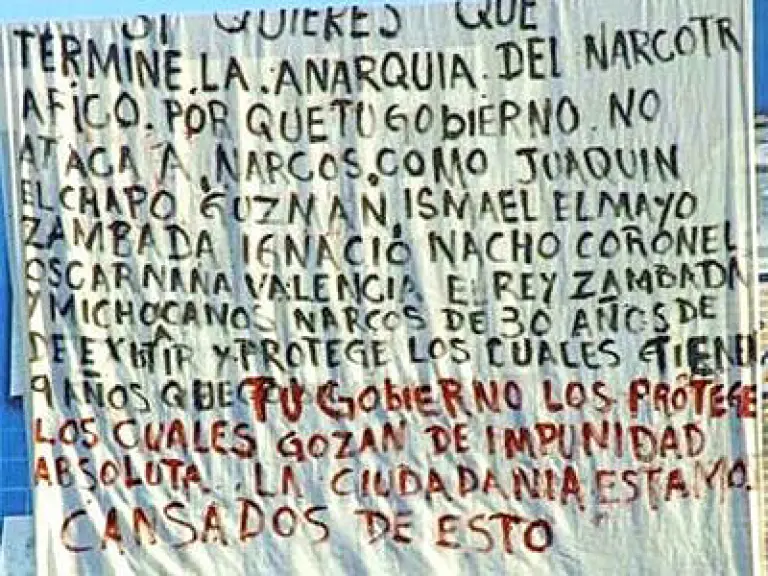 SI QUIERES QUE
TERMINE.LA.ANARQUIA.DEL NARCOTR
AFICO.POR QUETUGOBIERNO.NO
ATACA A.NARCOS.COMO JUAQUIN
ELCHAPO GUZMAN.ISMAEL ELMAYO
ZAMBADA IGNACIO NACHO CORONEL
OSCARNANA VALENCIA EL REY ZAMBADA
Y MICHOCANOS NARCOS DE 30 AÑOS DE
DE EXITIR Y PROTEGE LOS CUALES TIENEN
9 AÑOS QUE TU GOBIERNO LOS PROTEGE
LOS CUALES GOZAN DE IMPUNIDAD
ABSOLUTA. LA CIUDADANIA ESTAMO.
CANSADOS DE ESTO